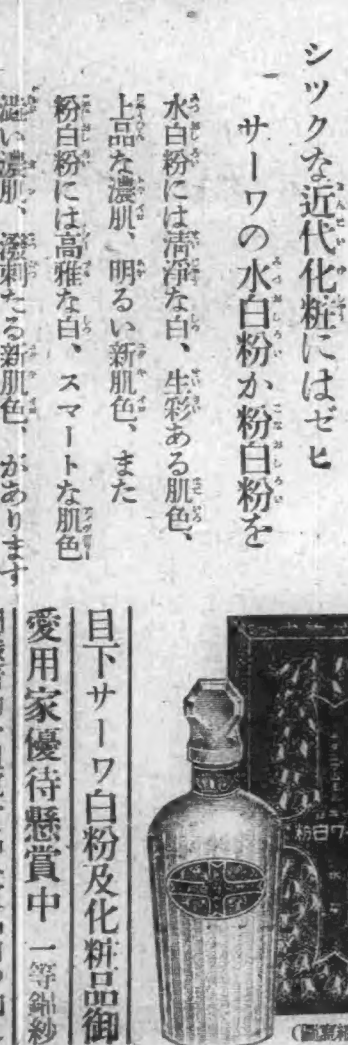 シックな近代化粧にはゼヒ
サーワの水白粉か粉白粉を
水白粉には清淨な白、生彩ある肌色、
上品な濃肌、明るい新肌色、また
粉白粉には高雅な白、スマートな肌色
澁い濃肌、潑剌たる新肌色、があります
目下サーワ白粉及化粧品御
愛用家優待懸賞中 一等錦紗